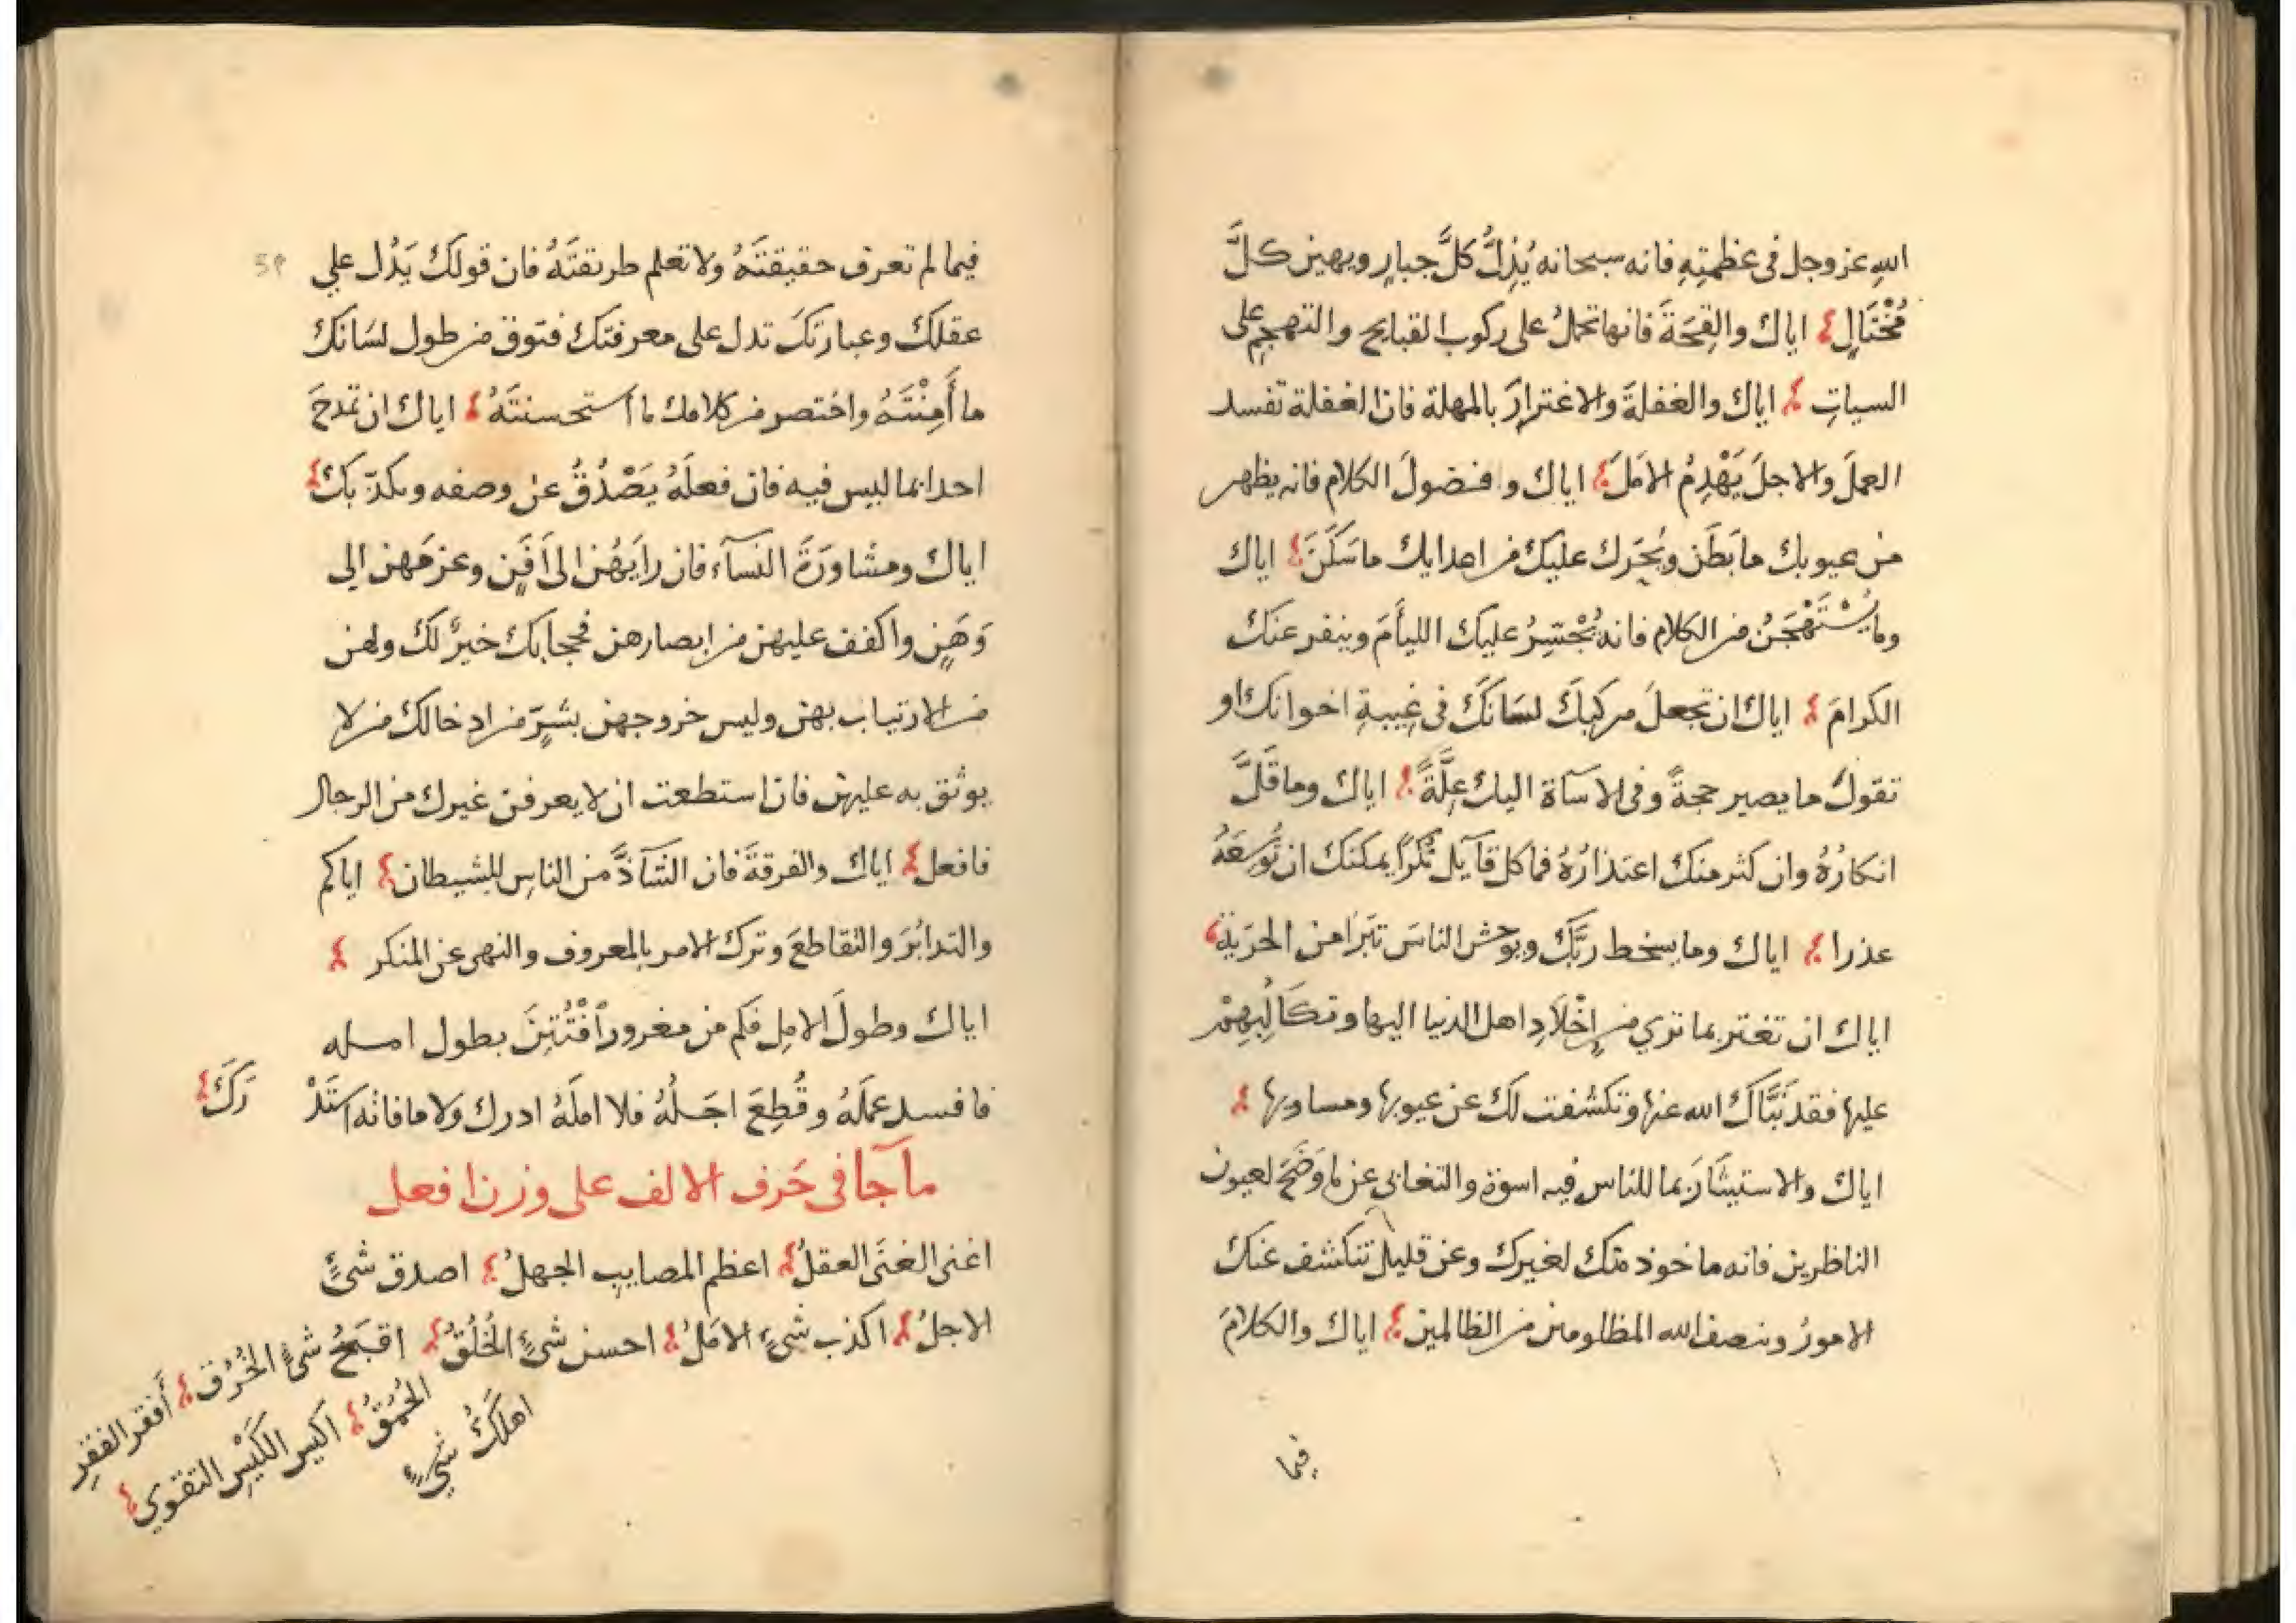 الله عز وجل فى عظمتِهِ فانه سبحانه يُذِلُّ كلَّ جبارٍ ويهين كلَّ
مُخْتَالٍ اياك والقِحَةَ فانها تحملُ على ركوب القبايح والتهجمِ على
السياتِ اياك والغفلةَ والاغترارَ بالمهلة فان الغفلة تفسد
العملَ والاجلَ يَهْدِمُ الامَلَ اياك وفضولَ الكلام فانه يظهر
من عيوبك ما بَطَن ويُحَرك عليك من اعدايك ما سَكَنَ اياك
وما يُسْتَهْجَنُ من الكلام فانه يُجْسِرُ عليك الليأمَ وينفر عنك
الكرامَ اياك ان تجعلَ مركبكَ لسَانَكَ فى غِيبةِ اخوانك او
تقولَ ما يصير حجةً وفى الاسآة اليك عِلَّةً اياك وما قَلَّ
انكارُهُ وان كثر منك اعتذارُهُ فما كل قآيل نُكْرًا يمكنك ان تُوسِعَهُ
عذرا اياك وما يسخط ربَّك ويوحش الناسَ تبَرَا من الحرَيَة
اياك ان تغتر بما تري من اِخْلَادِ اهل الدنيا اليها وتكالُبِهِمْ
عليها فقد نَبَّاكَ الله عنها وتكشفت لك عن عيوبها ومساويها
اياك والاستيثَارَ بما للناس فيه اسوة والتغابى عن ما وَضَحَ لعيون
الناظرين فانه ماخوذ منك لغيرك وعن قليل تنكشف عنك
الامورُ وينصف الله المظلومين من الظالمين اياك والكلامَ
فيما
فيما لم تعرف حقيقتَهُ ولا تعلم طريقتَهُ فان قولك يَدُل علي
عقلك وعبارتكَ تدل على معرفتك فتوق من طول لسَانك
ما أَمِنْتَهُ واختصر من كلامك ما استحسنتَهُ اياك ان تمدحَ
احدا بما ليس فيه فان فعلَهُ يَصْدُقُ عن وصفه ويكذّبك
اياك ومشاورَةَ النسآء فان رايَهُن الى اَفَنٍ وعزمَهن الى
وَهَنٍ واكفف عليهن من ابصارهن فحجابك خيرٌ لك ولهن
من الارتياب بهن وليس خروجهن بشرٍّ من ادخالك من لا
يوثق به عليهن فان استطعت ان لا يعرفن غيرك من الرجال
فافعل اياك والفرقةَ فان الشآذَّ من الناسِ للشيطان اياكم
والتدابُرَ والتقاطعَ وترك الامر بالمعروف والنهى عن المنكر
اياك وطولَ الاملِ فكم من مغرور اُفْتُتِنَ بطول امله
فافسد عملَهُ وقُطِعَ اجلُهُ فلا املَهُ ادرك ولا ما فاته استَدْ
رَكَ
ما جآ فى حَرف الالف على وزن افعل
اغنى الغنَى العقلُ اعظم المصايبِ الجهلُ اصدق شئٍ
الاجلُ اكذب شئٍ الامَلُ احسن شئٍ الخُلُقُ اقبَحُ شئٍ الخُرْق أَفقر الفقرِ
الحُمْقُ اكيس الكَيْسِ التقوي
اهلَكُ شئٍ